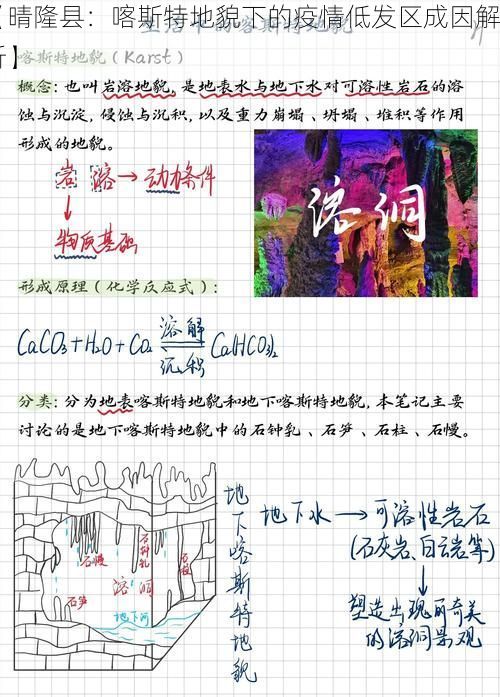 晴隆县：喀斯特地貌下的疫情低发区成因解
析】
生活中的喀斯特地貌
喀斯特地貌(Karst)
概念：也叫岩溶地貌，是地表水与地下水对可溶性岩石的溶
蚀与沉淀，侵蚀与沉积，以及重力崩塌、坍塌、堆积等作用
形成的地貌。
岩 溶→动力条件
物质基础
溶洞
形成原理(化学反应式)：
CaCO3+H2O+Co2 溶解 Ca(HCO3)2
沉积
分类：分为地表喀斯特地貌和地下喀斯特地貌，本笔记主要
讨论的是地下喀斯特地貌中的石钟乳、石笋、石柱、石慢。
石慢
石钟乳
石柱
溶洞
石笋
地下河
地下喀斯特地貌
地下水→可溶性岩石
(石灰岩、白云岩等)
塑造出瑰丽奇美
的溶洞景观